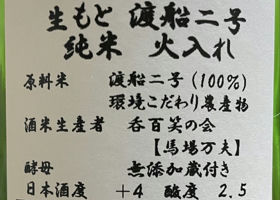 生もと 渡船二号
純米 火入れ
原料米 渡船二号(100%)
環境こだわり農産物
酒米生産者 呑百笑の会
【馬場万夫】
酵母 無添加蔵付き
日本酒度 +4 酸度 2.5